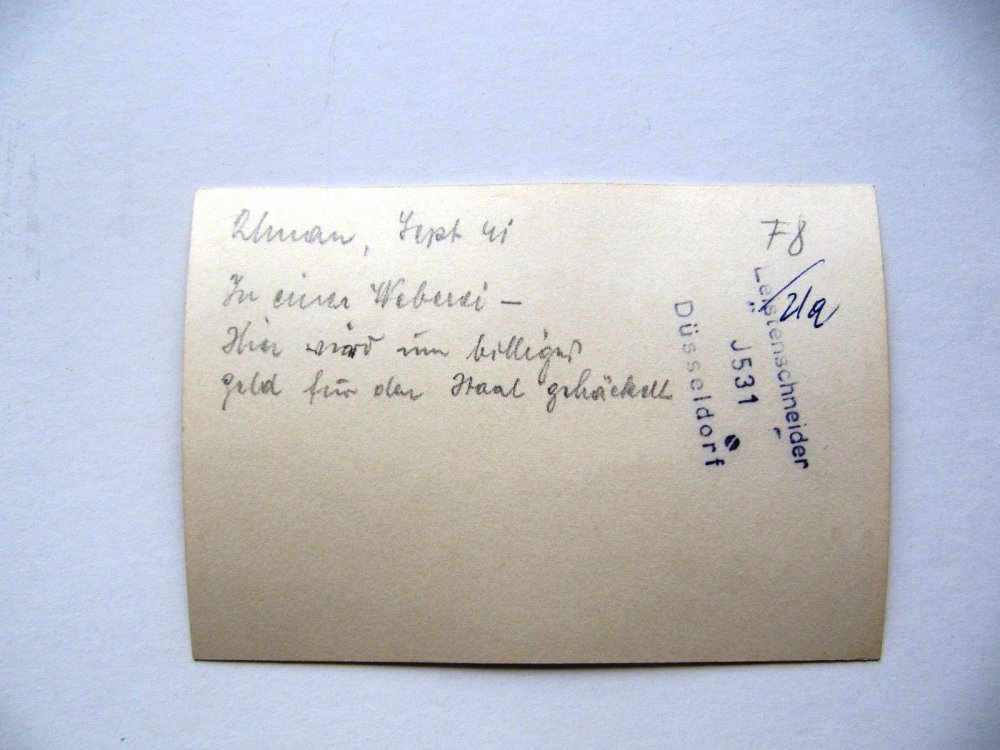 Uman, Sept 41
In einer Weberei –
Hier wird um billiges
Geld für den Staat gehäckelt
F8
Leistenschneider
J531
Düsseldorf